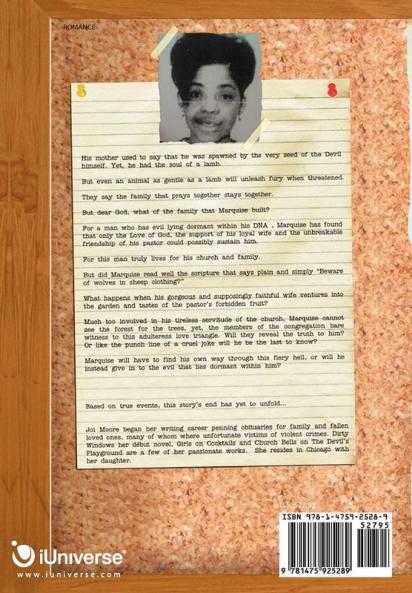 ROMANCE
His mother used to say that he was spawned by the very seed of the Devil
himself. Yet, he had the soul of a lamb.
But even an animal as gentle as a lamb will unleash fury when threatened.
They say the family that prays together stays together.
But dear God, what of the family that Marquise built?
For a man who has evil lying dormant within his DNA , Marquise has found
that only the Love of God, the support of his loyal wife and the unbreakable
friendship of his pastor could possibly sustain him.
For this man truly lives for his church and family.
But did Marquise read well the scripture that says plain and simply "Beware
of wolves in sheep clothing?"
What happens when his gorgeous and supposingly faithful wife ventures into
the garden and tastes of the pastor's forbidden fruit?
Much too involved in his tireless servitude of the church, Marquise cannot
see the forest for the trees, yet, the members of the congregation bare
witness to this adulteress love triangle. Will they reveal the truth to him?
Or like the punch line of a cruel joke will he be the last to know?
Marquise will have to find his own way through this fiery hell, or will he
instead give in to the evil that lies dormant within him?
Based on true events, this story's end has yet to unfold...
Joi Moore began her writing career penning obituaries for family and fallen
loved ones, many of whom where unfortunate victims of violent crimes. Dirty
Windows her début novel, Girls on Cocktails and Church Bells on The Devil's
Playground are a few of her passionate works. She resides in Chicago with
her daughter.
ISBN 978-1-4759-2528-9
52795
9 781475 925289
iUniverse®
www.iuniverse.com